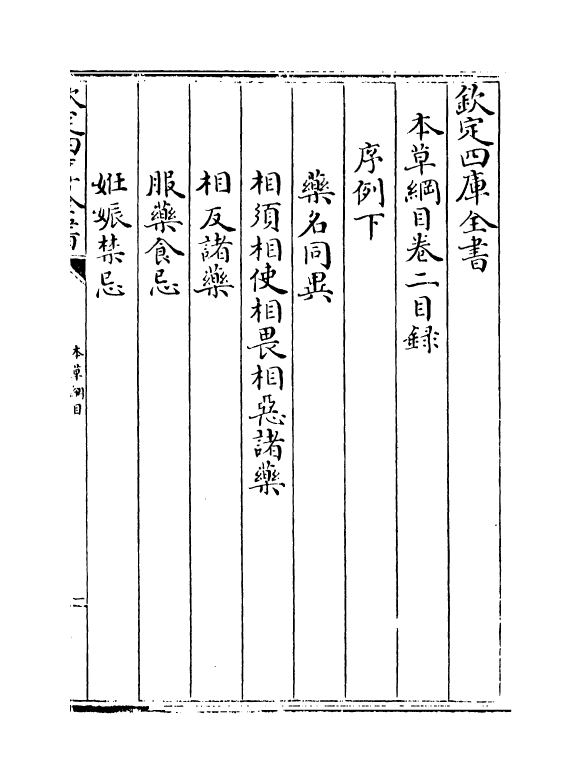 欽定四庫全書
本草綱目卷二目録
序例下
藥名同異
相須相使相畏相惡諸藥
相反諸藥
服藥食忌
姙娠禁忌
欽定四庫全書
本草綱目